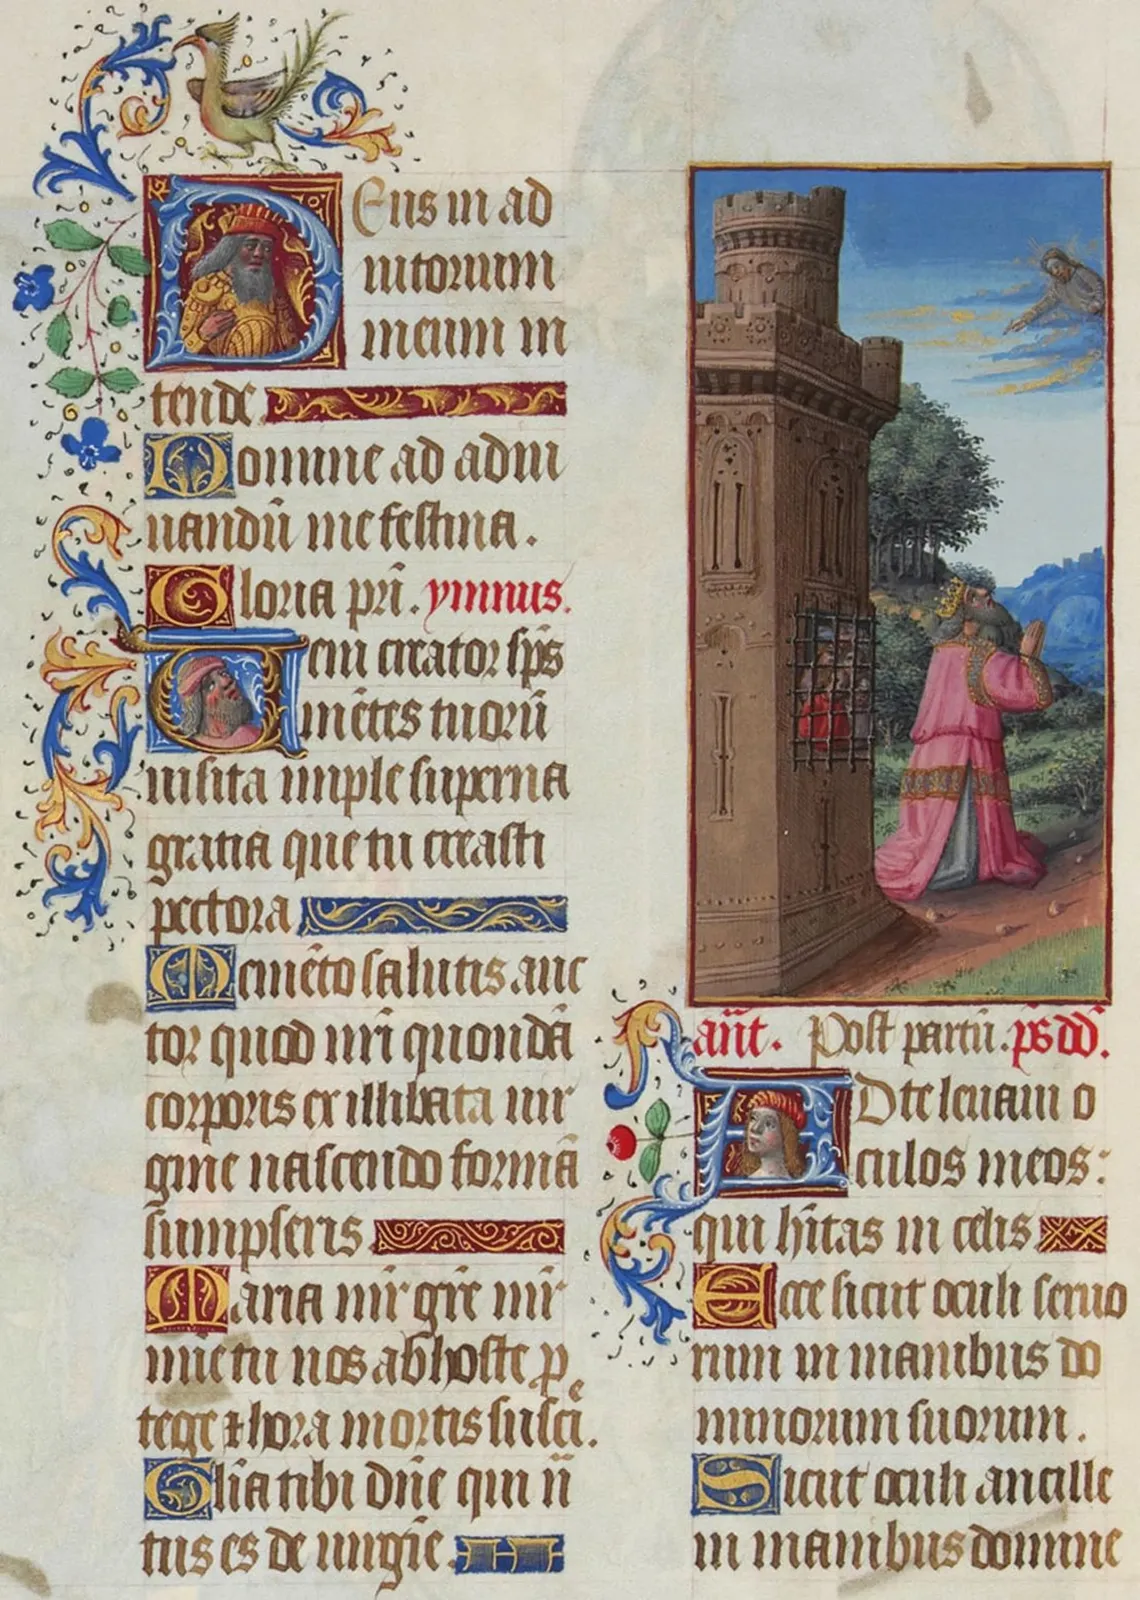 Deus in ad
iutorium
meum in
tende
Domine ad adiu
uandū me festina.
Gloria pri̅. ymnus.
Veni creator sp̅s
me̅tes tuorū
uisita imple superna
gratia que tu creasti
pectora
Meme̅to salutis auc
tor quod nr̅i quonda̅
corporis ex illibata uir
gine nascendo forma̅
sumpseris
Maria mr̅ gr̅e mr̅
mi̅e tu nos ab hoste p
tege ⁊ hora mortis susci̅pe.
Gl̅ia tibi dn̅e qui n̅
tus es de uirgi̅e.
an̅t. Post partū. p̅s dd̅.
AD te leuaui o
culos meos:
qui h̅itas in celis
Ecce sicut oculi seruo
rum in manibus do
minorum suorum.
Sicut oculi ancille
in manibus domine